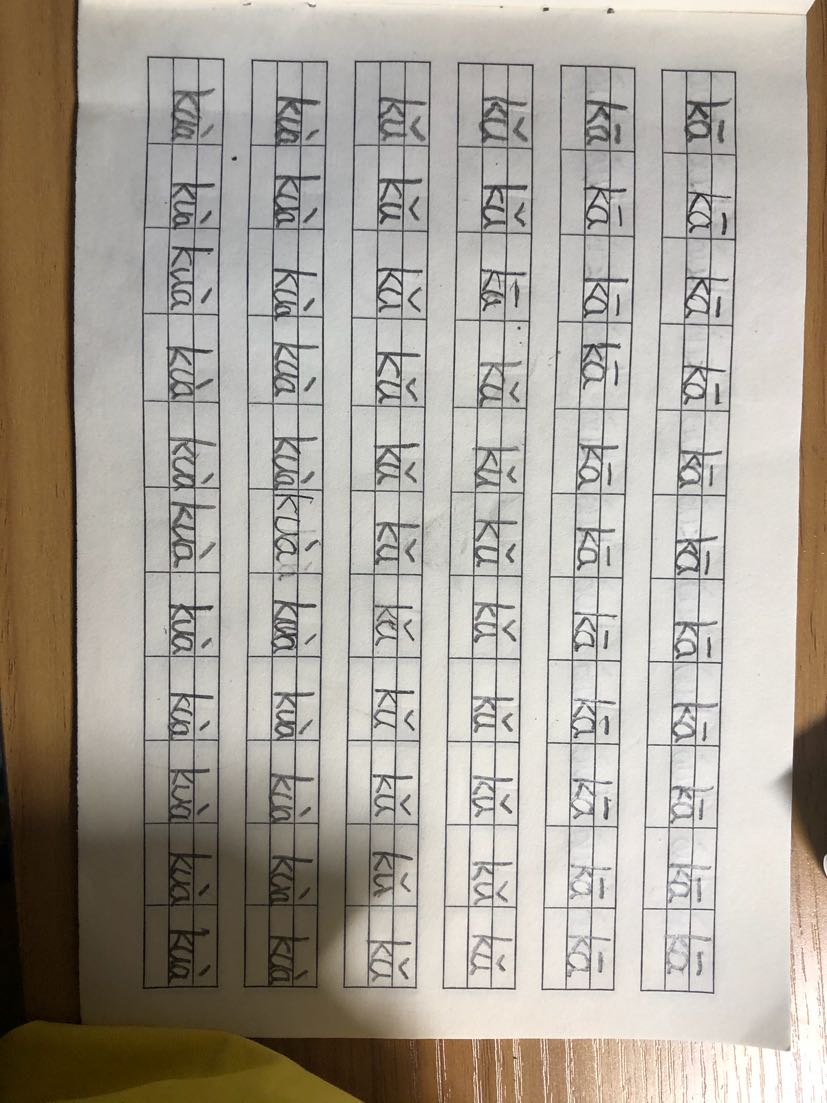 kā kā kā kā kā kā kā kā kā kā kā
kā kā kā kā kā kā kā kā kā kā kā
kǔ kǔ kā kǔ kǔ kǔ kǔ kǔ kǔ kǔ kǔ
kǔ kǔ kǔ kǔ kǔ kǔ kǔ kǔ kǔ kǔ kǔ
kuà kuà kuà kuà kuà kuà kuà kuà kuà kuà kuà
kuà kuà kuà kuà kuà kuà kuà kuà kuà kuà kuà